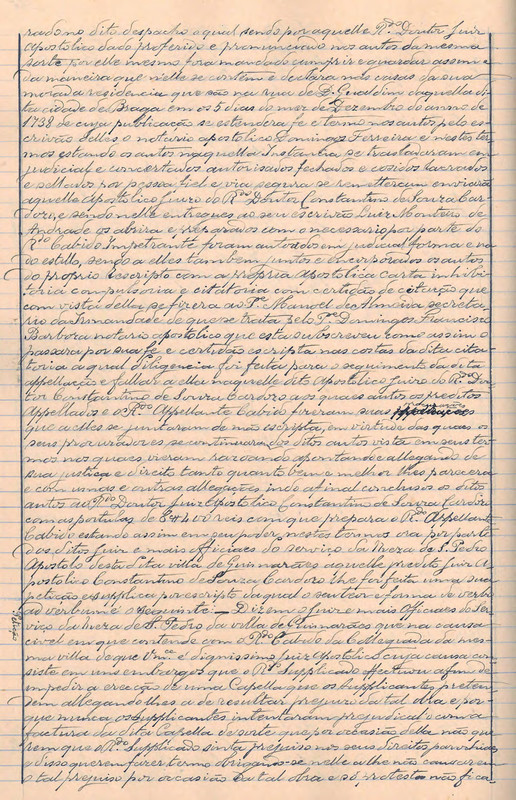 rado no dito despacho a qual sendo por aquelle R.do Doutor Juiz
Apostolico dado proferido e pronunciado nos autos da mesma
sorte por elle mesmo fora mandado cumprir e guardar assim e
da maneira que nelle se contem e declara nas casas da sua
morada residencia que são na rua de D. Gualdim daquella di-
ta cidade de Braga em os 5 dias do mez de Dezembro do anno de
1738 de cuja publicação se estendera fé e termo nos autos pelo es-
crivão delles o notario apostolico Domingos Ferreira e nestes ter-
mos estando os autos naquella Instancia se trasladaram em
judicial e concertados autorisados fechados e cosidos lacrados
e sellados por pessoa fiel e via segura se remetteram e enviarão
aquelle Apostolico Juizo do R.do Doutor Constantino de Souza Car-
dozo, e sendo nelle entregues ao seu escrivão Luiz Monteiro de
Andrade os abrira e preparados com o necessario por parte do
R.do Cabido Impetrante foram autoados em judicial forma e na
do estillo, sendo a elles tambem juntos e encorporados os autos
do proprio Rescripto com a propria Apostolica carta inhibi-
toria compulsoria e citatoria com certidão de citação que
com vista della se fizera ao P.e Manoel de Almeida secreta-
rio da Irmandade de que se trata pelo P.e Domingos Francisco
Barboza notario apostolico que esta subscreveu como assim o
passara por sua fé e certidão escripta nas costas da dita cita-
toria a qual diligencia foi feita para o seguimento da dita
appellação e fallar a ella naquelle dito Apostolico Juizo do R.do Dou-
tor Constantino de Souza Cardozo aos quaes autos os preditos
Appellados e o R.do Appellante Cabido fizeram suas
que a elles se juntaram de mão escripta, em virtude das quaes os
seus procuradores se continuara dos ditos autos vista em seus ter-
mos nos quaes vieram razoando apontando e allegando de
sua justiça e direito tanto quanto bem e melhor lhes parecera
e com umas e outras allegações indo afinal conclusos os ditos
autos ao P.do Doutor Juiz Apostolico Constantino de Souza Cardozo
com as portulas de 6#400 reis com que prepara o R.do Appellante
Cabido estando assim em seu poder, nestes termos ora por parte
dos ditos Juiz e mais officiaes do serviço da Meza de S. Pedro
Apostolo desta dita villa de Guimarães aquelle predito Juiz A-
postolico Constantino de Souza Cardozo lhe foi feita uma sua
petição e supplica por escripto da qual o seu teor e forma de verbo
ad verbum é o seguinte: — Dizem o Juiz e mais Officiaes do Ser-
viço da Meza de S. Pedro da villa de Guimarães que na causa
civel em que contende com o R.do Cabido da Collegiada da mes-
ma villa de que V.mce é dignissimo Juiz Apostolico cuja causa con-
siste em uns embargos que o R.do Supplicado affectou afim de
impedir a erecção de uma Capella que os Supplicantes preten-
dem allegando lhes a de resultar prejuizo da tal obra e por-
que nunca os Supplicantes intentaram prejudical-o com a
factura da dita Capella de sorte que por occasião della não que-
rem que o R.do Supplicado sinta prejuizo nos seus direitos parochiaes
e disso querem fazer termo obrigando-se nelle a lhe não causarem
o tal prejuizo por occasião da tal obra e só protesta não fica
Petição